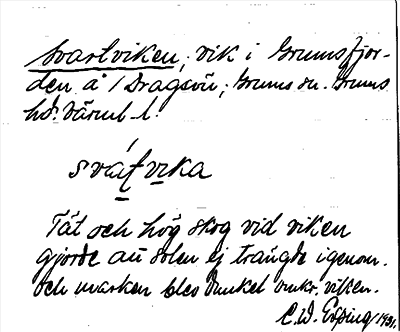 Svartviken, vik i Grumsfjor-
den å /Dragsön; Grums sn. Grums
hd. Värml. l.
svátvika
Tät och hög skog vid viken
gjorde att solen ej trängde igenom.
och marken blev dunkel omkr. viken.
C.W. Esping 1931.